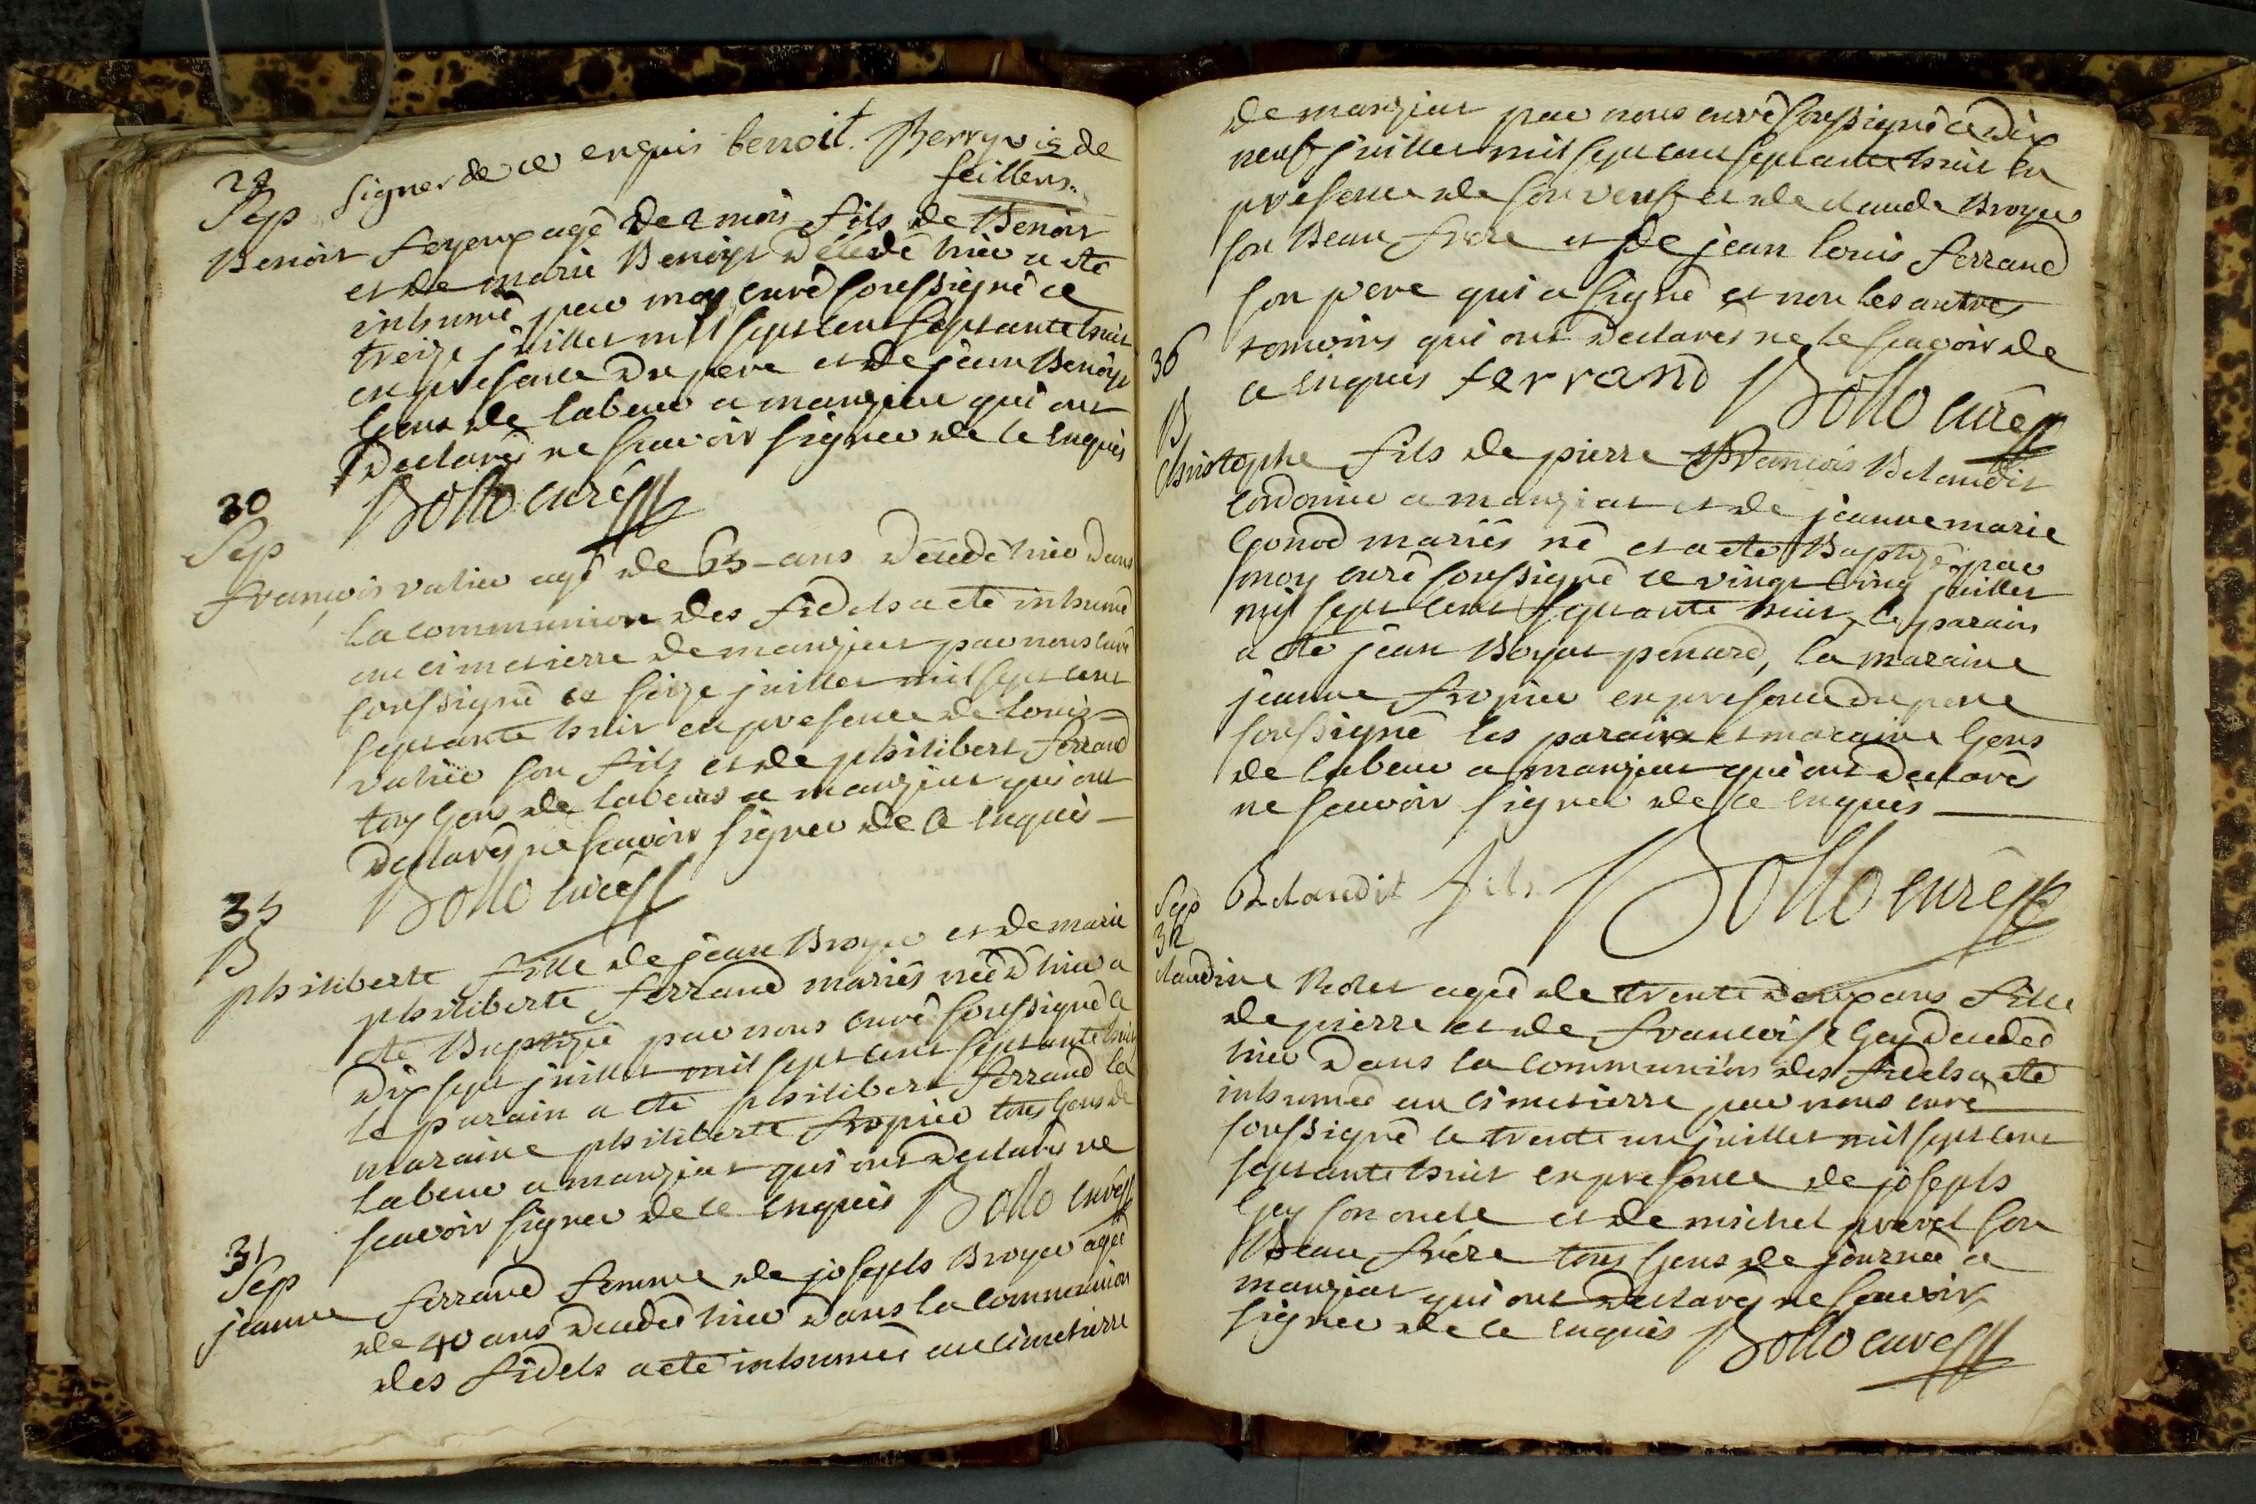 signer de ce enquis benoit Berry viz de
feillens
29
Sep
Benoit feyeux agé de 2 mois fils de Benoit
et de marie Benoist décédé hier a eté
inhumé par moy curé soussigné ce
treize juillet mil sept cent septante huit
en presence du pere et de jean Benoist
gens de labeur a manziat qui ont
declarés ne scavoir signer de ce enquis
Bollo curé
30
Sep
francois valier agé de 65 ans décédé hier dans
la communion des fidels a eté inhumé
au cimetierre de manziat par nous curé
soussigné ce seize juillet mil sept cent
septante huit en presence de louis
valier son fils et de philibert ferrand
tous gens de labeurs a manziat qui ont
declarés ne scavoir signer de ce enquis
Bollo curé
35
B
philiberte fille de jean Broyer et de marie
philiberte ferrand mariés née d'hier a
eté Baptizée par nous curé soussigné ce
dix sept juillet mil sept cent septante huit
le parain a eté philibert ferrand la
maraine philiberte fropier tous gens de
labeur a manziat qui ont declarés ne
scavoir signer de ce enquis Bollo curé
31
Sep
jeanne ferrand femme de joseph Broyer agée
de 40 ans decedée hier dans la communion
des fidels a eté inhumée au cimetierre
de manziat par nous curé soussigné ce dix
neuf juillet mil sept cent septante huit en
presence de son veuf et de claude Broyer
son Beau frere et de jean louis ferrand
son pere qui a signé et non les autres
temoins qui ont declarés ne le scavoir de
ce enquis ferrand Bollo curé
36
B
Christophe fils de pierre francois Belaudit
cordonier a manziat et de jeanne marie
Gonod mariés né et a eté Baptizé par
moy curé soussigné ce vingt cinq juillet
mil sept cent septante huit, le parain
a eté jean Boyat penard, la maraine
jeanne fropier en presence du pere
soussigné les parain et maraine gens
de labeur a manziat qui ont declarés
ne scavoir signer de ce enquis
Belaudit fils Bollo curé
Sep
32
claudine Rolet agée de trente deux ans fille
de pierre et de francoise Gey decedée
hier dans la communion des fidels a eté
inhumée au cimetierre par nous curé
soussigné le trente un juillet mil sept cent
septante huit en presence de joseph
Gey son oncle et de michel prevel son
Beau frere tous gens de journée a
manziat qui ont declarés ne scavoir
signer de ce enquis Bollo curé